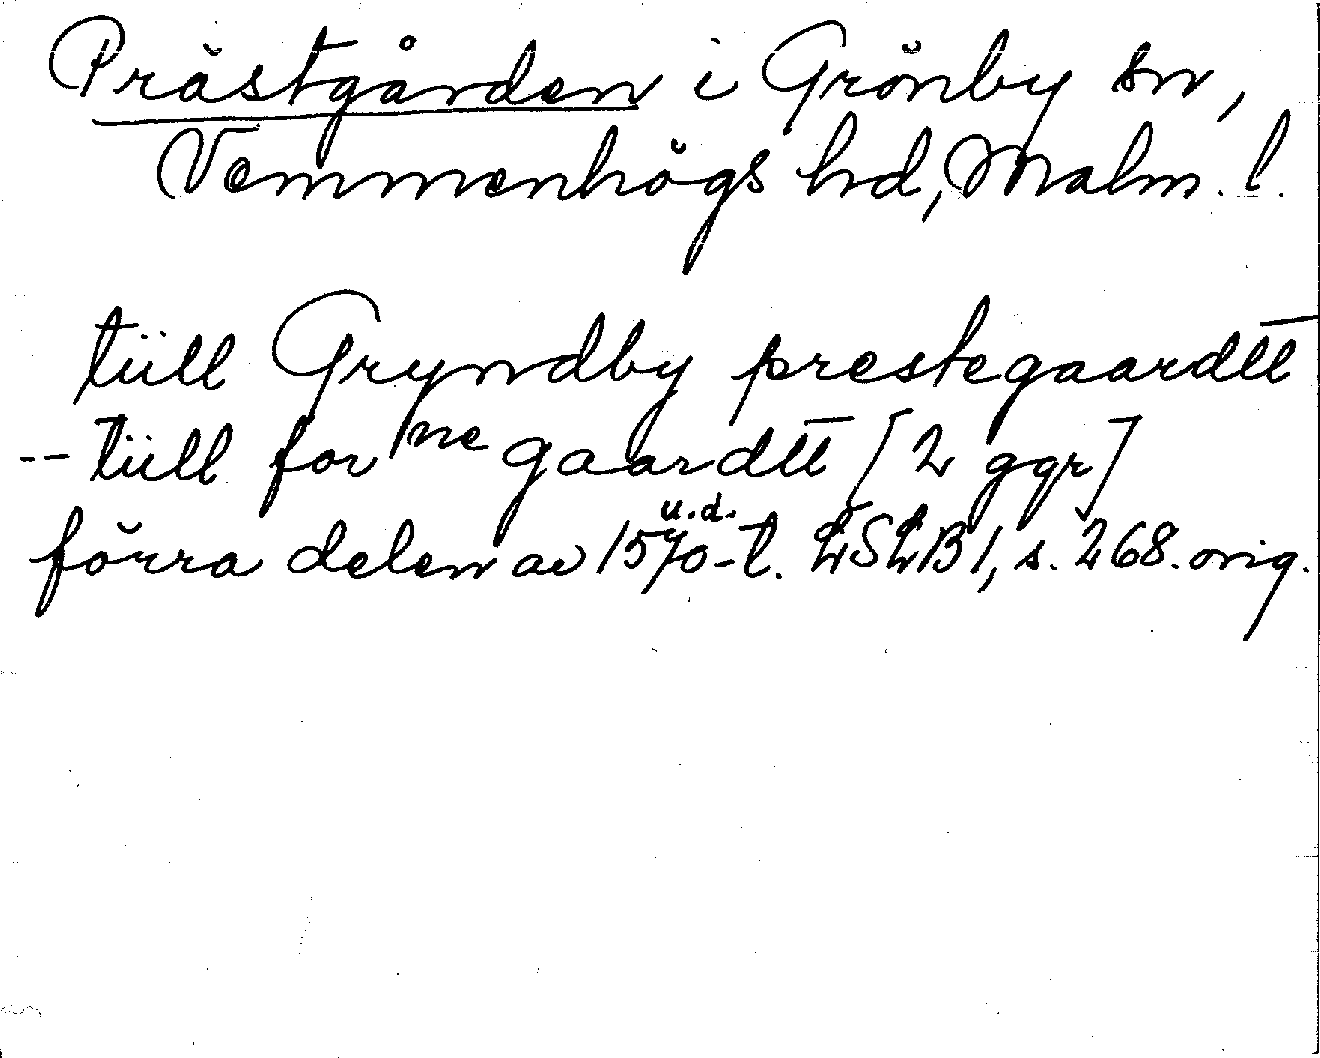 Prästgården i Grönby sn,
Vemmenhögs hd, Malm. l.
tüll Gryndby prestegaardtt
-- tüll for ne gaardtt [2 ggr]
u.d.
förra delen av 1570-t. LSLB 1, s. 268. orig.